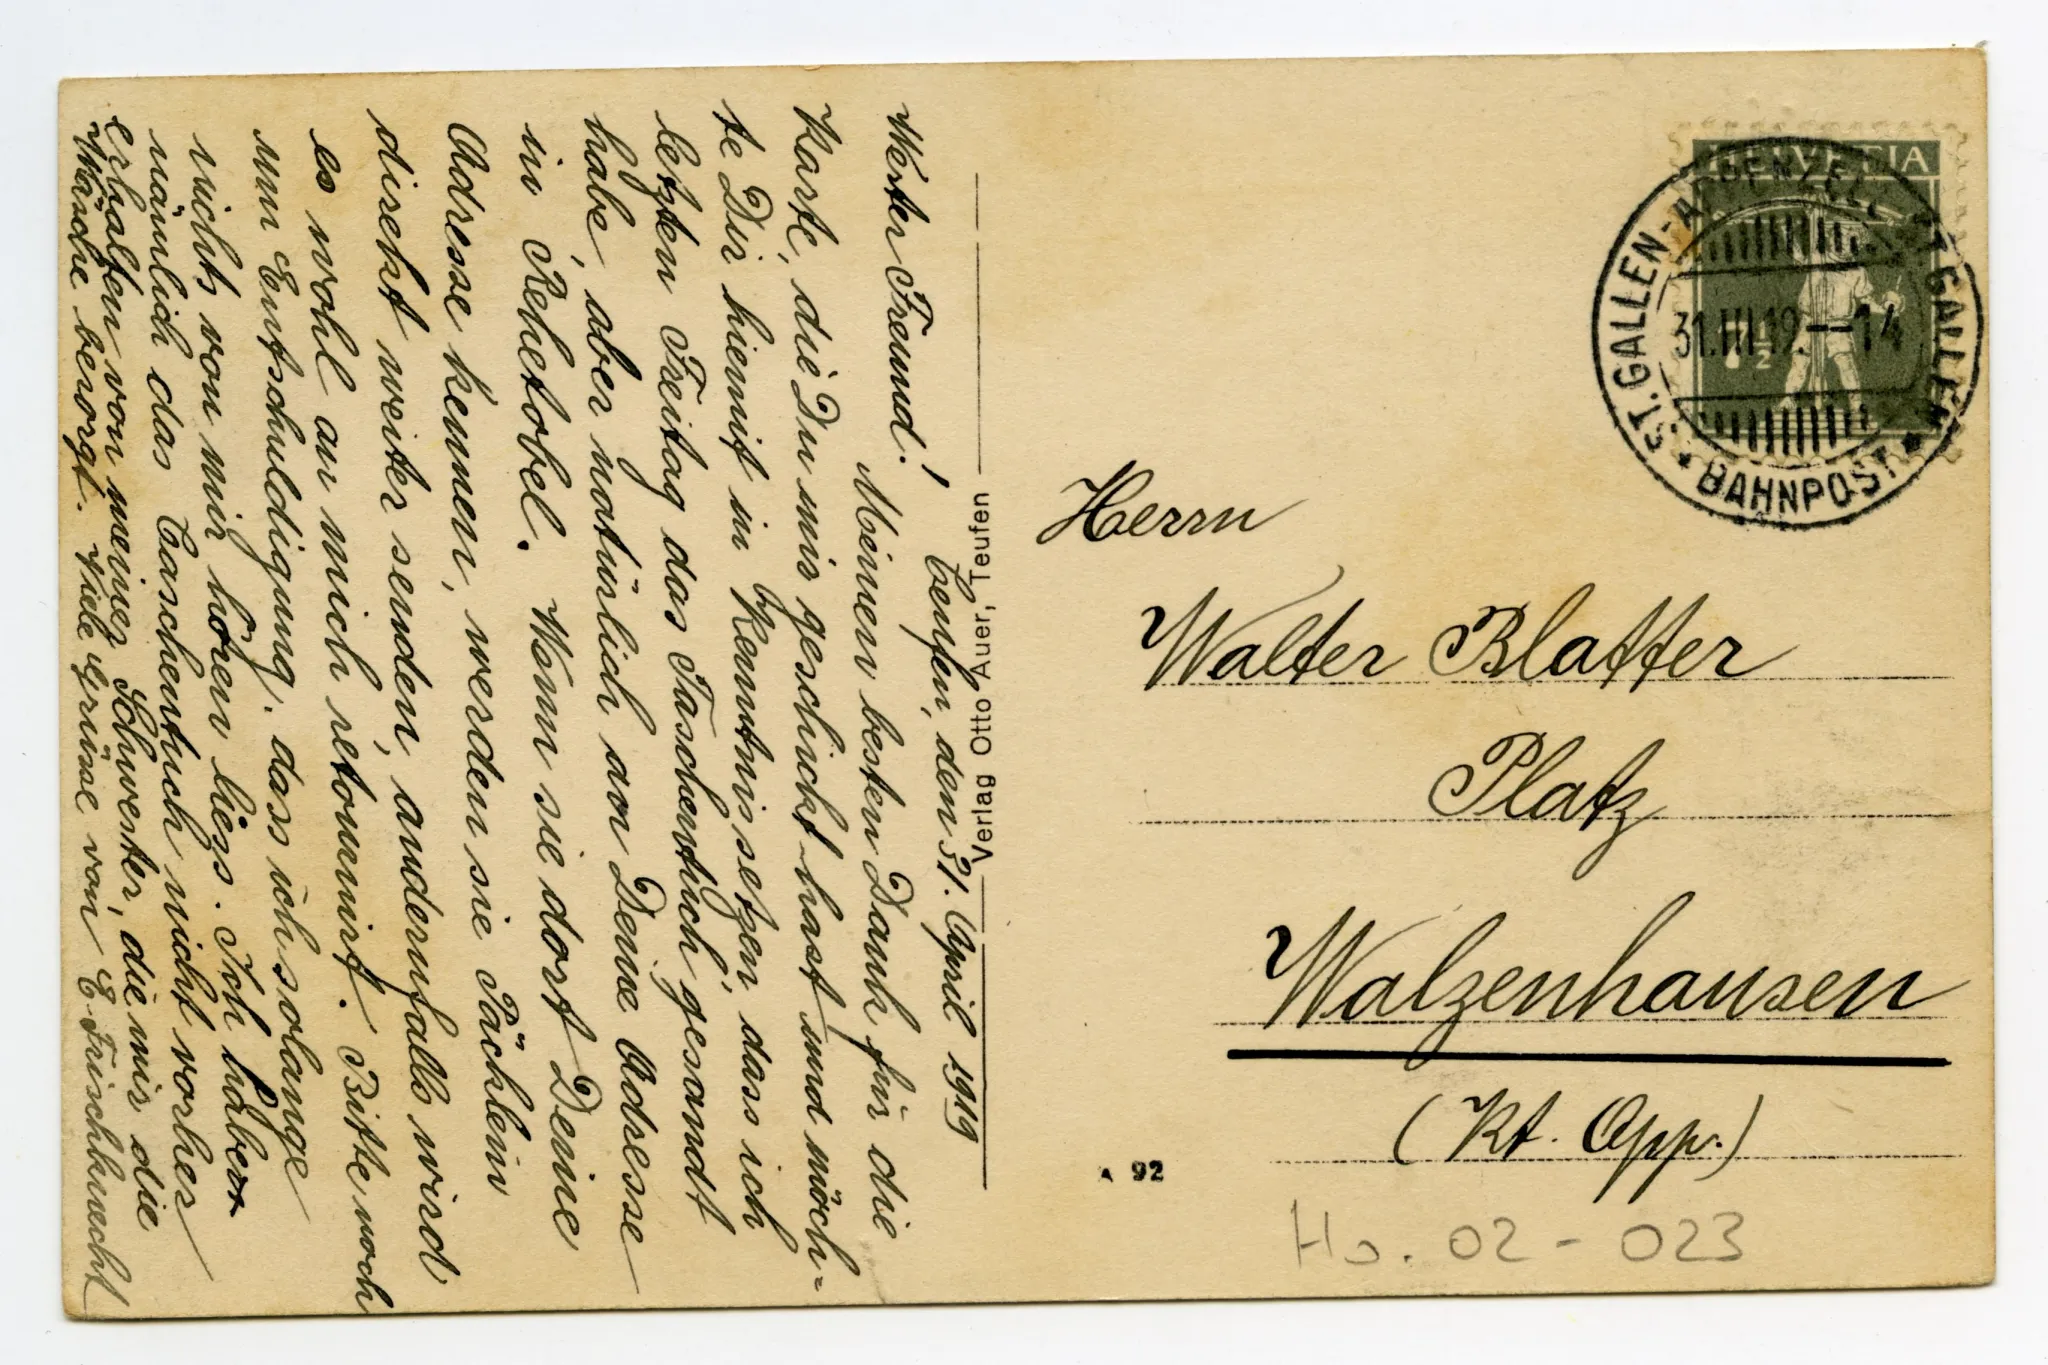 Teufen, den 31. April 1919
Werter Freund!
Meinen besten Dank für die
Karte, die Du mir geschickt hast und möch-
te Dir hiemit in Kenntnis setzen, dass ich
letzten Freitag das Taschentuch gesandt
habe, aber natürlich an Deine Adresse
in Rehetobel. Wenn sie dort Deine
Adresse kennen, werden sie Päcklein
direkt weiter senden, andernfalls wird
es wohl an mich retournirt. Bitte noch
um Entschuldigung, dass ich solange
nichts von mir hören liess. Ich haben
nämlich das Taschentuch nicht vorher
erhalten von meiner Schwester, die mir die
Wäsche besorgt. Viele Grüsse von E Frischknecht
Verlag Otto Auer, Teufen
HELVETIA
7½
ST. GALLEN-APPENZELL-ST. GALLEN
31.III.19.--14
* BAHNPOST *
Herrn
Walter Blatter
Platz
Walzenhausen
(Kt. App.)
92
Hs. 02 - 023